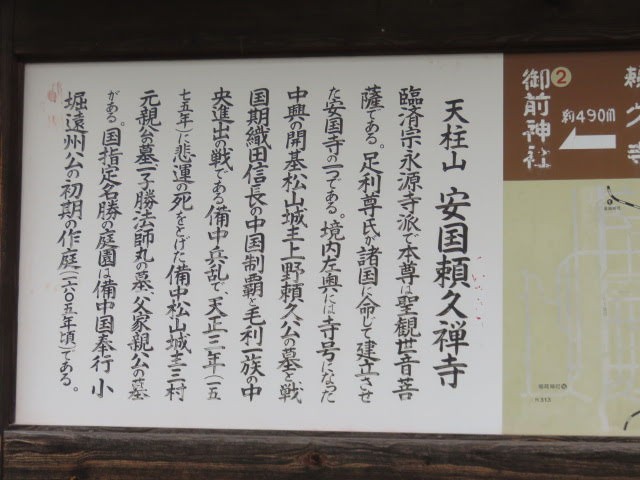 天柱山 安国頼久禅寺
臨済宗永源寺派で本尊は聖観世音菩
薩である。足利尊氏が諸国に命じて建立させ
た安国寺の一つである。境内左奥には寺号になった
中興の開基松山城主上野頼久公の墓と戦
国期織田信長の中国制覇と毛利一族の中
央進出の戦である備中兵乱で、天正三年(一五
七五年)に悲運の死をとげた備中松山城主三村
元親公の墓、子勝法師丸の墓、父家親公の墓
がある。国指定名勝の庭園は備中国奉行 小
堀遠州公の初期の作庭(一六〇五年頃)である。
頼久寺
②
御前神社
約490m